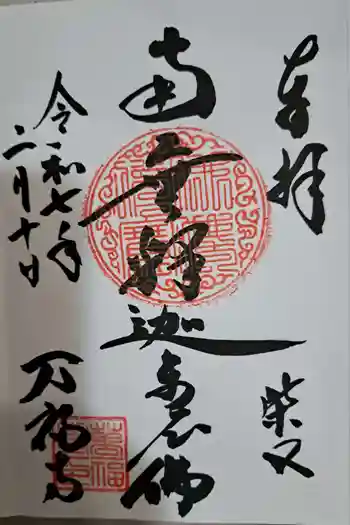 奉拝
柴又
南無釋迦牟尼佛
令和七年
二月十日
万福寺